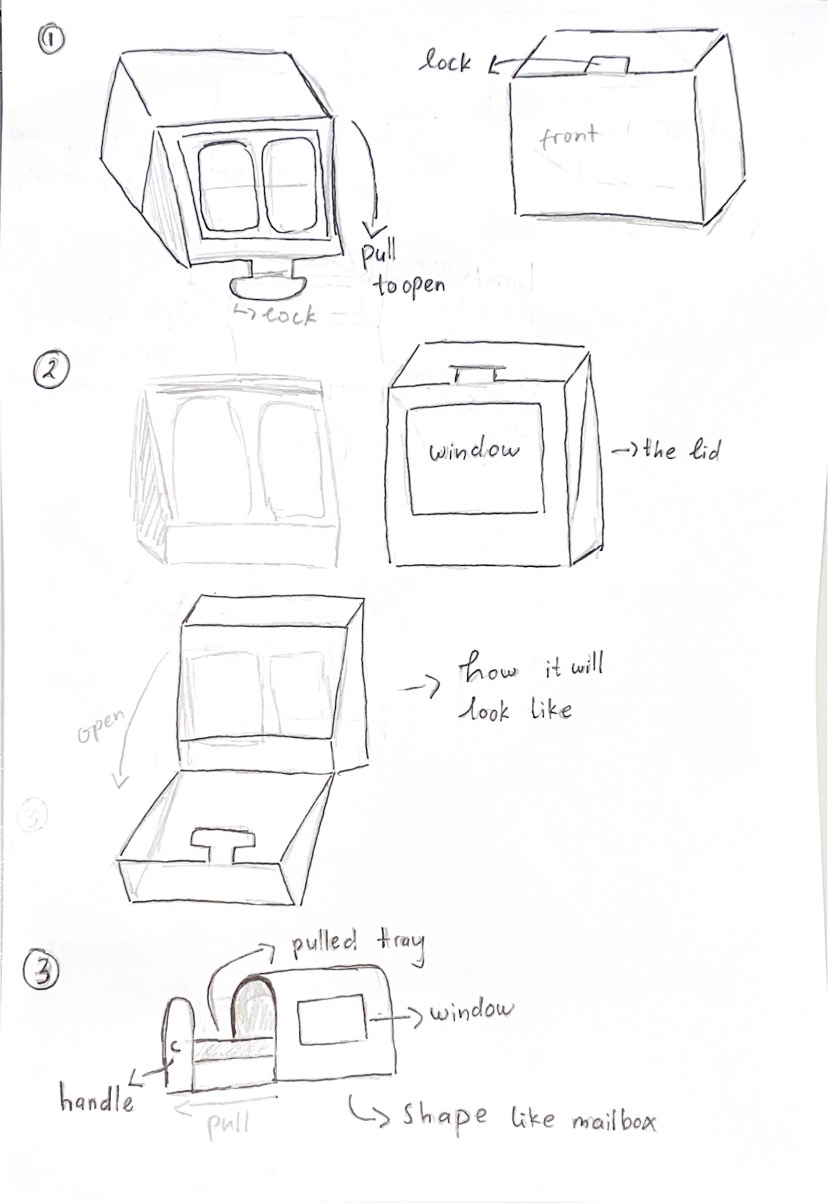 1
lock
front
pull
to open
lock
2
window
the lid
how it will
look like
open
3
3
pulled tray
window
handle
pull
shape like mailbox